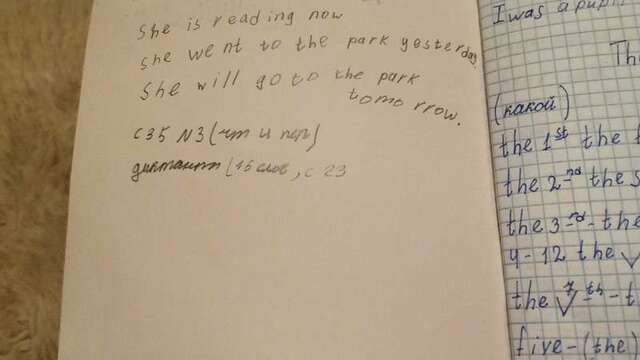 she is reading now
she went to the park yesterday.
She will go to the park
tomorrow.
с 35 N3 (чт и пер)
диктант (15 слов, с 23
I was a pupil
Th
(какой)
the 1st the f
the 2nd the s
the 3rd - the
4-12 the √
the √7th - t
five - (the)